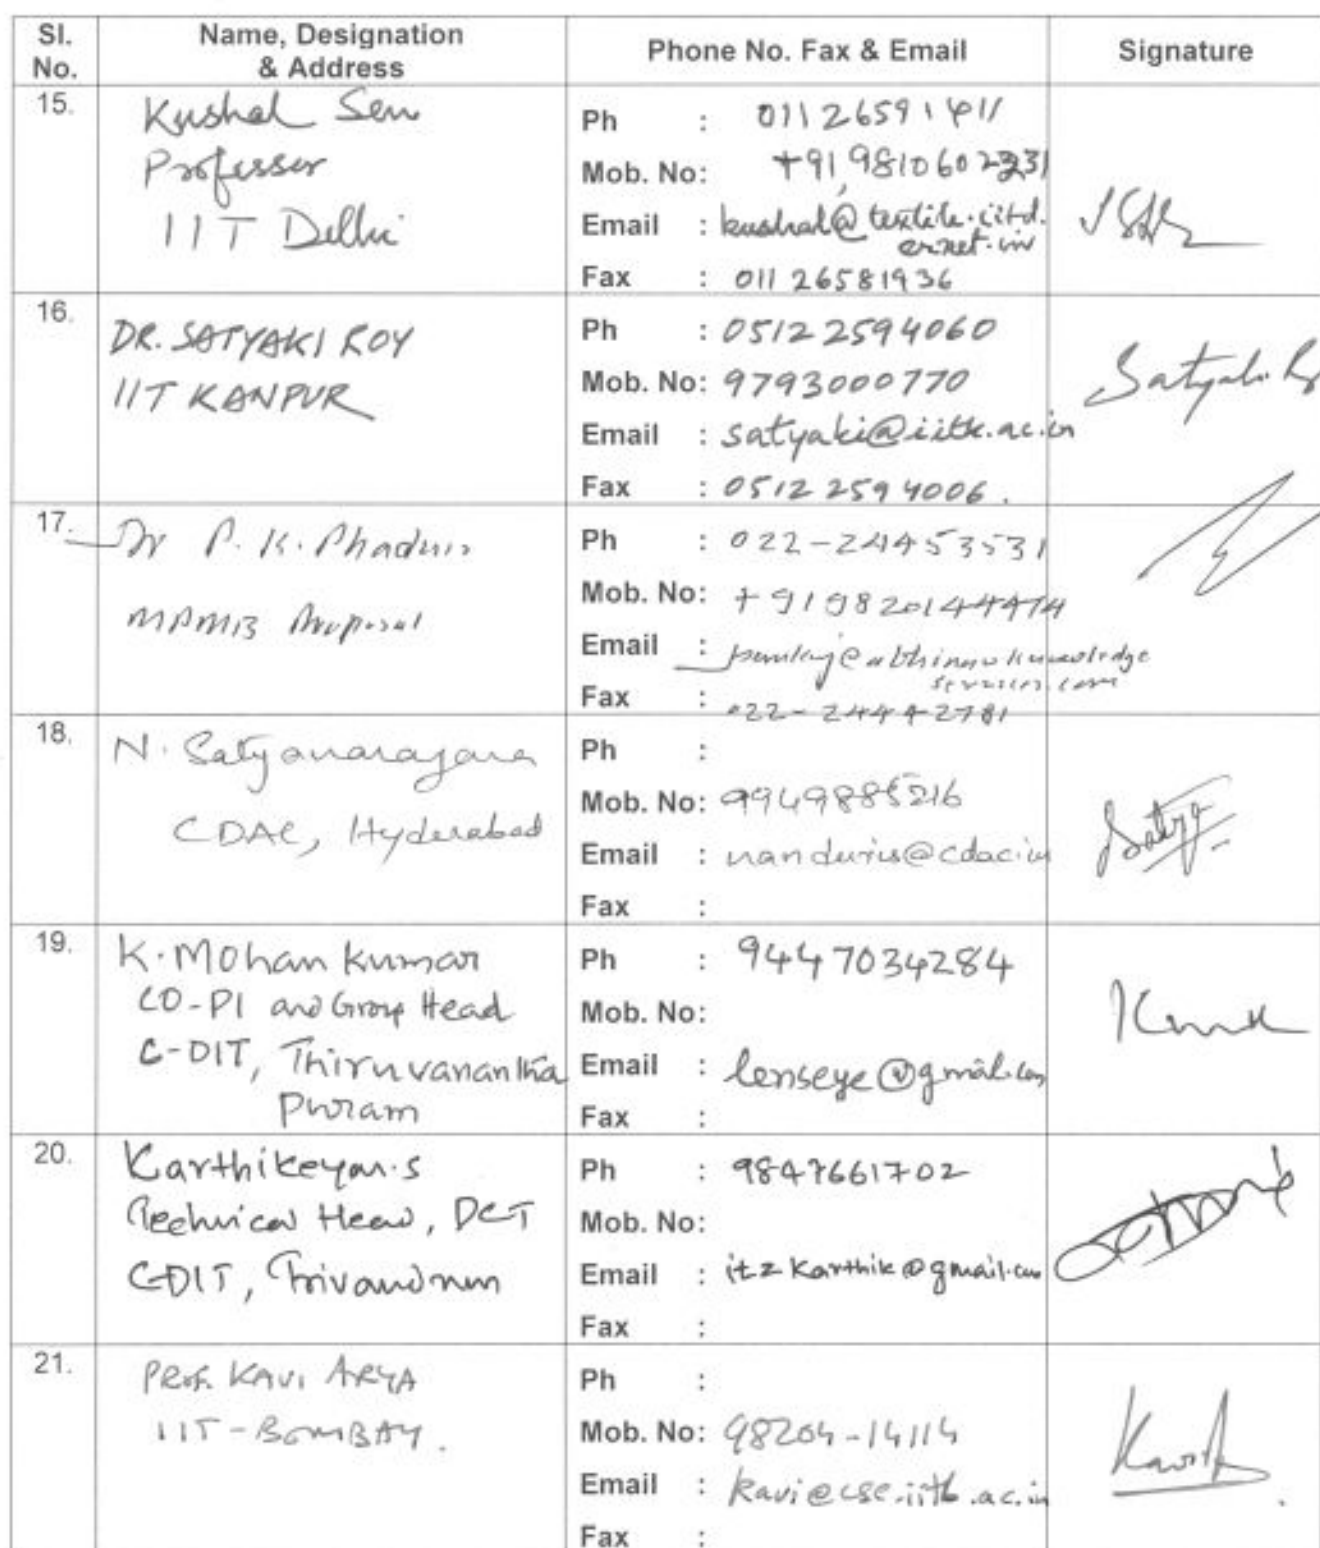 Sl. No. Name, Designation & Address Phone No. Fax & Email Signature
15. Kushal Sen
Professor
IIT Delhi
Ph : 011 26591411
Mob. No: +91 9810602331
Email : kushal@textile.iitd.
ernet.in
Fax : 011 26581936
16. DR. SATYAKI ROY
IIT KANPUR
Ph : 0512 2594060
Mob. No: 9793000770
Email : satyaki@iitk.ac.in
Fax : 0512 2594006.
Satyaki Roy
17. Dr P. K. Phadnis
Proposal
Ph : 022-24453531
Mob. No: +919820144974
Email : pankaj@abhinavknowledge
services.com
Fax : 022-24442781
18. N. Satyanarayana
CDAC, Hyderabad
Ph :
Mob. No: 9949885216
Email : nanduris@cdac.in
Fax :
Satya
19. K. Mohan Kumar
CO-PI and Group Head
C-DIT, Thiruvanantha
Puram
Ph : 9447034284
Mob. No:
Email : lenseye@gmail.com
Fax :
20. Karthikeyan.S
Technical Head, DCT
C-DIT, Trivandrum
Ph : 9847661702
Mob. No:
Email : itzkarthik@gmail.com
Fax :
21. PROF. KAVI ARYA
IIT-BOMBAY.
Ph :
Mob. No: 98204-14114
Email : kavi@cse.iitb.ac.in
Fax :